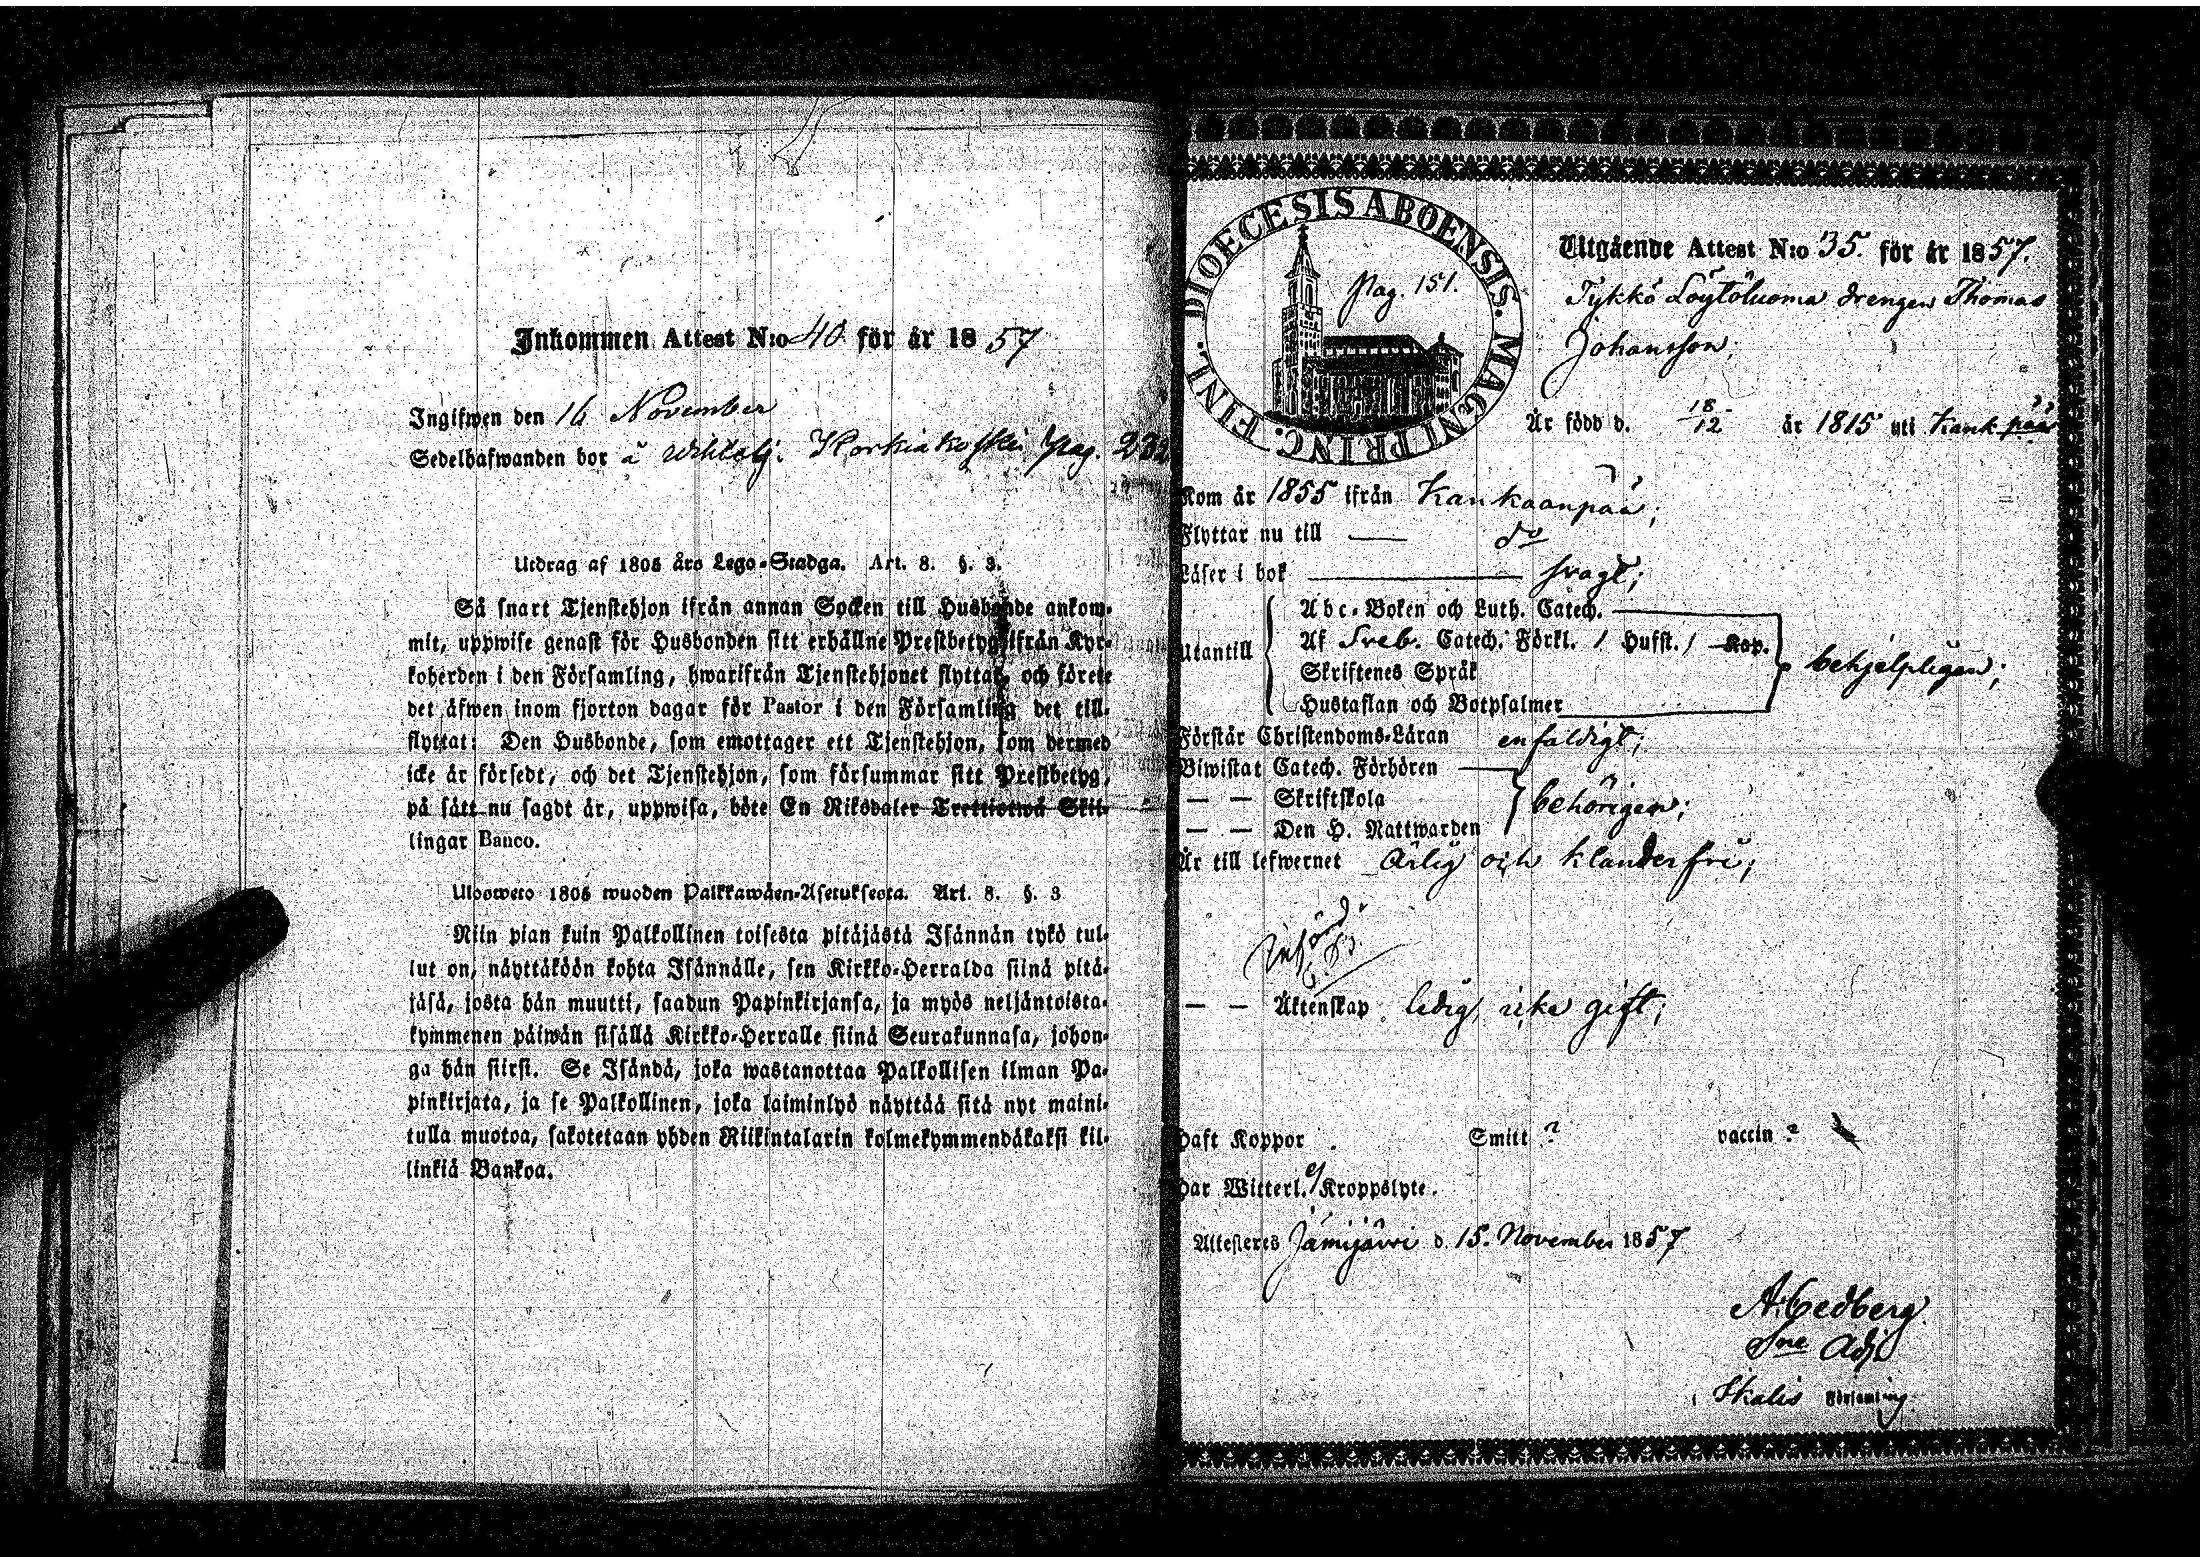 Inkommen Attest N:o 40 för år 1857
Ingifwen den 16 November
Sedelhafwanden bor å Wihtelj. Horkiakoski pag. 232
Utdrag af 1805 års Lego-Stadga. Art. 8. §. 3.
Så snart Tjenstehjon ifrån annan Socken till Husbonde ankom-
mit, uppwise genast för Husbonden sitt erhållne Prestbetyg ifrån Kyr-
koherden i den Församling, hwarifrån Tjenstehjonet flyttat, och förete
det äfwen inom fjorton dagar för Pastor i den Församling det till-
flyttat: Den Husbonde, som emottager ett Tjenstehjon, som dermed
icke är försedt, och det Tjenstehjon, som försummar sitt Prestbetyg,
på sätt nu sagdt är, uppwisa, böte En Riksdaler Trettiotwå Skil-
lingar Banco.
Ulosweto 1805 wuoden Palkkawäen-Asetuksesta. Art. 8. §. 3
Niin pian kuin Palkollinen toisesta pitäjästä Isännän tykö tul-
lut on, näyttäköön kohta Isännälle, sen Kirkko-Herralda siinä pitä-
jäsä, josta hän muutti, saadun Papinkirjansa, ja myös neljäntoista-
kymmenen päiwän sisällä Kirkko-Herralle siinä Seurakunnasa, johon-
ga hän siirsi. Se Isändä, joka wastanottaa Palkollisen ilman Pa-
pinkirjata, ja se Palkollinen, joka laiminlyö näyttää sitä nyt maini-
tulla muotoa, sakotetaan yhden Riikintalarin kolmekymmendäkaksi kil-
linkiä Bankoa.
DIOECESIS ABOENSIS. MAGNI PRINC. FINL.
Pag. 151.
Utgående Attest N:o 35. för år 1857.
Jykkö Löytöluoma drengen Thomas
Johansson;
Är född d. 18/12 år 1815 uti Kankpää
Kom år 1855 ifrån Kankaanpää;
Flyttar nu till — do
Läser i bok — svagt;
Utantill
Abc-Boken och Luth. Catech.
Af Sveb. Catech. Förkl. / Hufst. / Kap.
Skriftenes Språk
Hustaflan och Botpsalmer
behjelpligen;
Förstår Christendoms-Läran enfaldigt;
Biwistat Catech. Förhören
— — Skriftskola
— — Den H. Nattwarden
behörigen;
Är till lefwernet Ärlig och klanderfri;
— — Äktenskap ledig, icke gift;
Haft Koppor Smitt ? vaccin ?
Har Witterl. ej Kroppslyte.
Attesteres Jämijärvi d. 15. November 1857
A. Cedberg
Sne Adj
i Ikalis Församling